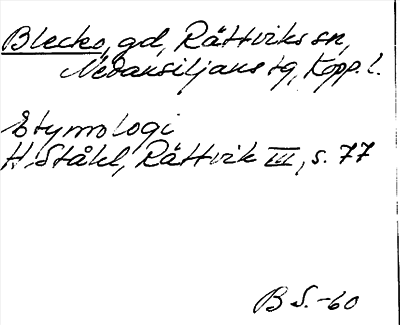 Blecko, gd, Rättviks sn,
Nedansiljans tg, Kopp. l.
Etymologi
H. Ståhl, Rättvik III, s. 77
B S.-60